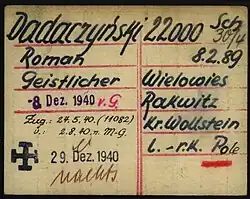 Dadaczyński 22000 Sch
30/4
Roman 8.2.89
Geistlicher Wielowies
-8. Dez. 1940 v.G. Rakwitz
Zug.: 24.5.40. (11082) Kr. Wollstein
ü.: 2.8.40. n. M-G. l. - r.k. Pole
29. Dez. 1940
nachts